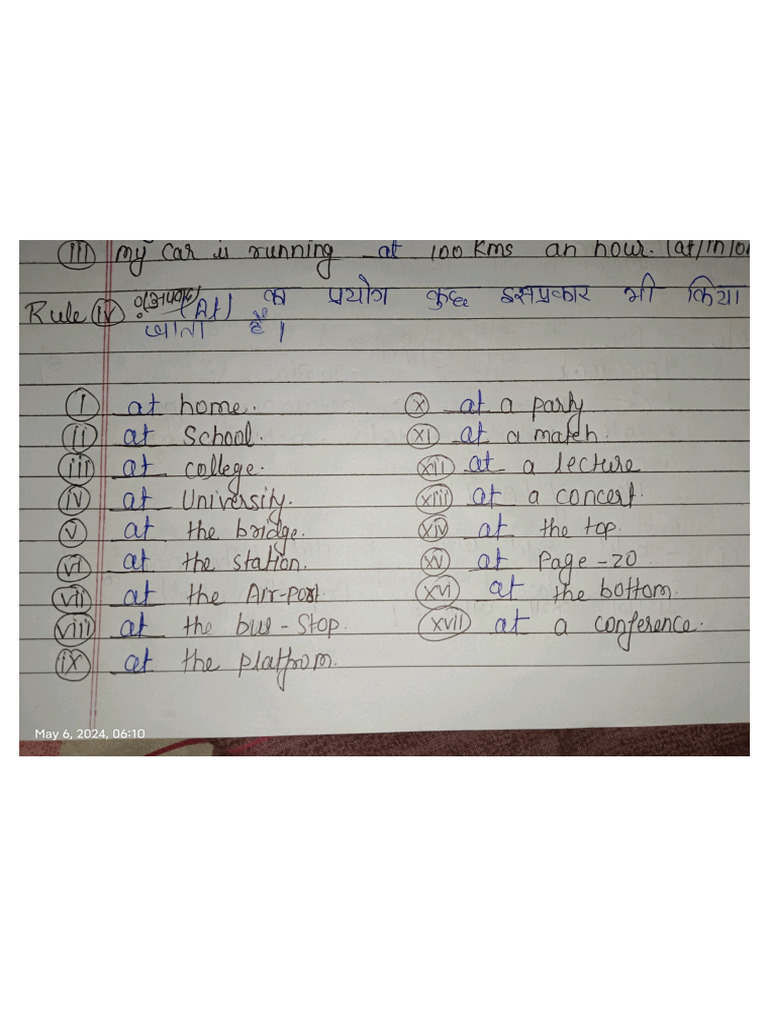 (iii) my car is running at 100 kms an hour. (at/in/on
Rule (iv) :(अपवाद) (At) का प्रयोग कुछ इसप्रकार भी किया
जाता हैं।
(i) at home.
(ii) at School.
(iii) at college.
(iv) at University.
(v) at the bridge.
(vi) at the station.
(vii) at the Air-port.
(viii) at the bus-Stop.
(ix) at the platfrom.
(x) at a party
(xi) at a match.
(xii) at a lecture
(xiii) at a concert.
(xiv) at the top.
(xv) at Page-20
(xvi) at the bottom.
(xvii) at a conference.
May 6, 2024, 06:10